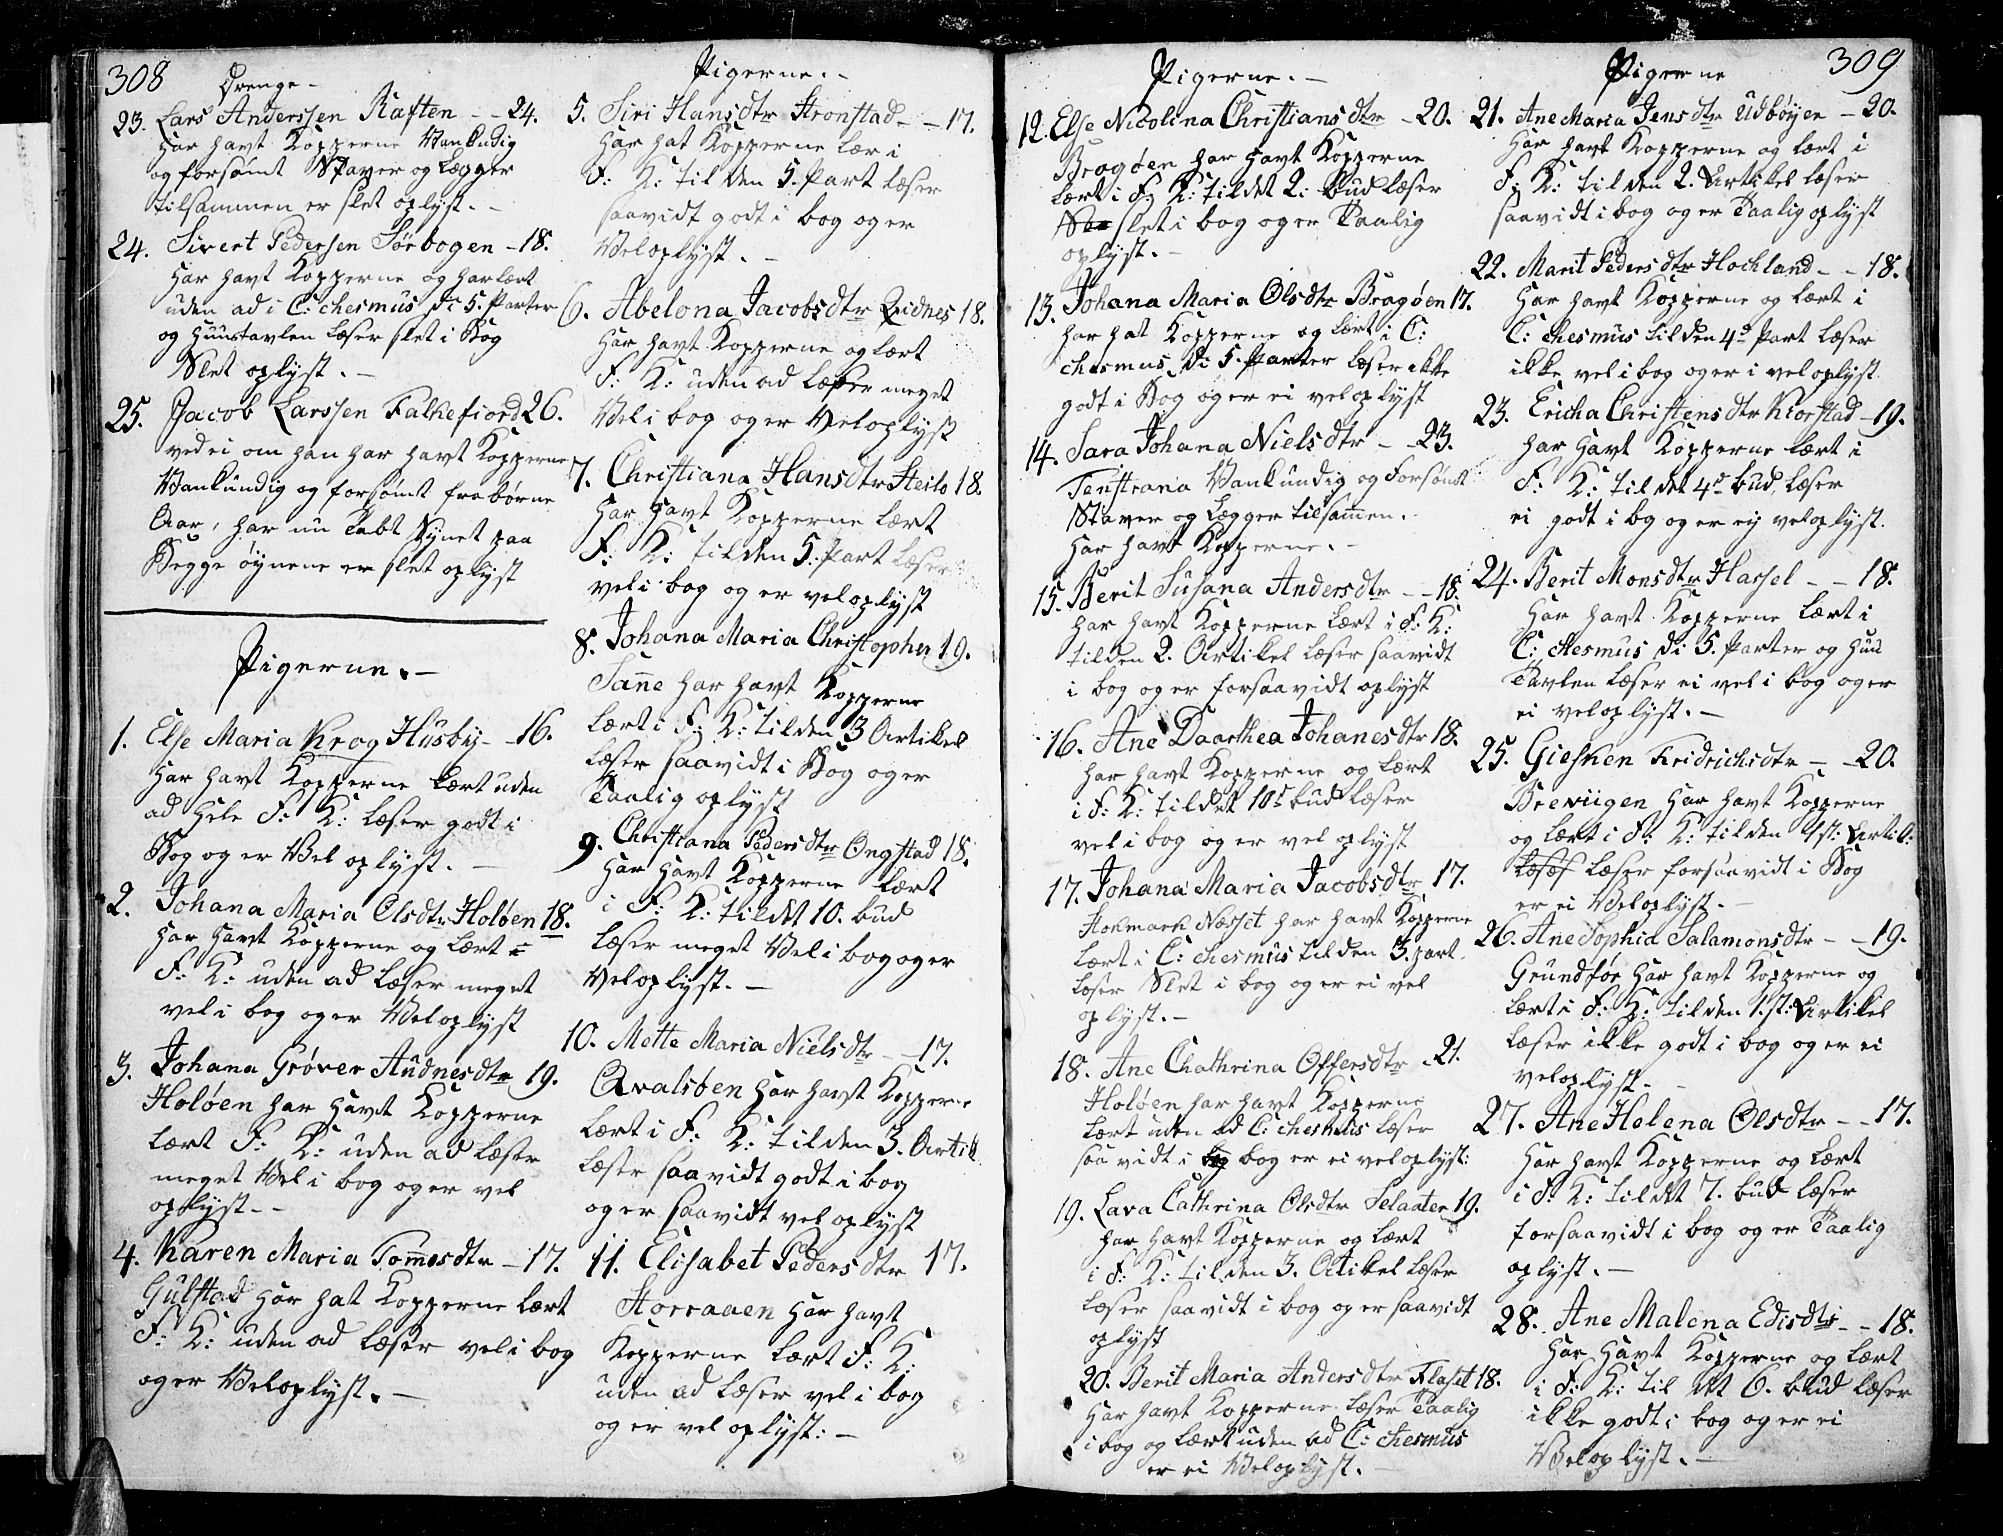 308
Drenge -
23. Lars Anderssen Raften - - 24.
Har havt Kopperne Vankundig
og forsømt Staver og Lægger
tilsammen er slet oplyst. -
24. Sivert Pedersen Sørbogen - 18.
Har havt Kopperne og har lært
uden ad i C: chesmus di 5. Parter
og Huustavlen læser slet i Bog
Slet oplyst. -
25. Jacob Larssen Falkefiord 26.
ved ei om han har havt Kopperne
Vankundig og forsømt fra børne
Aar, har nu tabt Synet paa
Begge øynene er slet oplyst
Pigerne. -
1. Else Maria Krog Husby - - 16.
Har havt Kopperne lært uden
ad hele F: K: læser godt i
Bog og er Vel oplyst. -
2. Johana Maria Olsdtr Holøen 18.
Har havt Kopperne og lært i
F: K: uden ad læser meget
vel i bog og er Vel oplyst
3. Johana Grøver Audnesdtr 19.
Holøen har havt Kopperne
lært F: K: uden ad læser
meget Vel i bog og er vel
oplyst. -
4. Karen Maria Tomosdtr - 17.
Gulstad har hat Kopperne lært
F: K: uden ad læser vel i bog
og er Vel oplyst. -
Pigerne. -
5. Siri Hansdtr Stronstad - - 17.
Har hat Kopperne lær i
F: K: til den 5. Part læser
saavidt godt i bog og er
Vel oplyst. -
6. Abelona Jacobsdtr Qvidnes 18.
Har havt Kopperne og lært
F: K: uden ad læser meget
Vel i bog og er Vel oplyst
7. Christiana Hansdtr Steilo 18.
Har havt Kopperne lært
F: K: til den 5. Part læser
vel i bog og er vel oplyst
8. Johana Maria Christopher 19.
Sanne har havt Kopperne
lært i F: K: til den 3 Artikel
læser saavidt i Bog og er
Taalig oplyst
9. Christiana Pedersdtr Ongstad 18.
Har havt Kopperne lært
i F: K: til det 10. bud
læser meget Vel i bog og er
Vel oplyst. -
10. Mette Maria Nielsdtr - - 17.
Qvalsøen har havt Kopperne
lært i F: K: til den 3. Artik
læser saavidt godt i bog
og er saavidt vel oplyst
11. Elisabet Pedersdtr 17.
Storraaen har havt
Kopperne lært F: K:
uden ad læser vel i bog
og er vel oplyst: -
Pigerne. -
12. Else Nicolina Christiansdtr - 20.
Bragøen har havt Kopperne
lært i F: K: til det 2: Bud læser
slet i bog og er Taalig
oplyst. -
13. Johana Maria Olsdtr Bragøen 17.
har hat Kopperne og lært i C:
chesmus di 5. Parter læser ikke
godt i Bog og er ei vel oplyst
14. Sara Johana Nielsdtr - - 23.
Tenstrana Vankundig og forsømt
Staver og Lægger tilsamen.
Har havt Kopperne. -
15. Berit Susana Andersdtr - - 18.
har havt Kopperne lært i F: K:
til den 2. Artikel læser saavidt
i bog og er forsaavidt oplyst
16. Ane Daarthea Johanesdtr 18.
har havt Kopperne og lært
i F: K: til det 10d bud læser
vel i bog og er vel oplyst
17. Johana Maria Jacobsdtr 17.
Hokmark Næsset har havt Kopperne
lært i C: chesmus til den 3. part.
læser Slet i bog og er ei vel
oplyst. -
18. Ane Chathrina Offersdtr - 21.
Holøen har havt Kopperne
lært uden ad C: chesmus læser
saa vidt i bog er ei vel oplyst:
19. Lava Cathrina Olsdtr Selaater 19.
Har havt Kopperne og lært
i F: K: til den 3. Artikel læser
læser saavidt i bog og er saavidt
oplyst
20. Berit Maria Andersdtr Flaset 18.
Har havt Kopperne læser Taalig
i bog og lært uden ad C: chesmus
er ei Vel oplyst. -
Pigerne
309
21. Ane Maria Jensdtr Udbøyen - 20.
Har havt Kopperne og lært i
F: K: til den 2. Artikel læser
saavidt i bog og er Taalig oplyst
22. Marit Pedersdtr Hochland - - 18.
Har havt Kopperne og lært i
C: chesmus til den 4d Part læser
ikke vel i bog og er i vel oplyst
23. Ericha Christensdtr Kiorstad - 19.
har havt Kopperne lært i
F: K: til det 4d bud læser
ei godt i bog og er ey vel oplyst.
24. Berit Monsdtr Hassel - - 18.
Har havt Kopperne lært i
C: chesmus di 5. Parter og Huu
Tavlen læser ei vel i bog og er
ei vel oplyst. -
25. Giesken Fridrichsdtr - - 20.
Breviigen har havt Kopperne
og lært i F: K: til den 1st: Artik:
læser forsaavidt i Bog
er ei Vel oplyst. -
26. Ane Sophia Salamonsdtr - - 19.
Grundfør har havt Kopperne og
lært i F: K: til den 1.st: Artikel
læser ikke godt i bog og er ei
vel oplyst. -
27. Ane Helena Olsdtr - - 17.
Har havt Kopperne og lært
i F: K: til det 7. bud læser
forsaavidt i bog og er Taalig
oplyst. -
28. Ane Malena Edisdtr - - 18.
Har havt Kopperne og lært
i F: K: til det 6. bud læser
ikke godt i bog og er ei
Vel oplyst. -